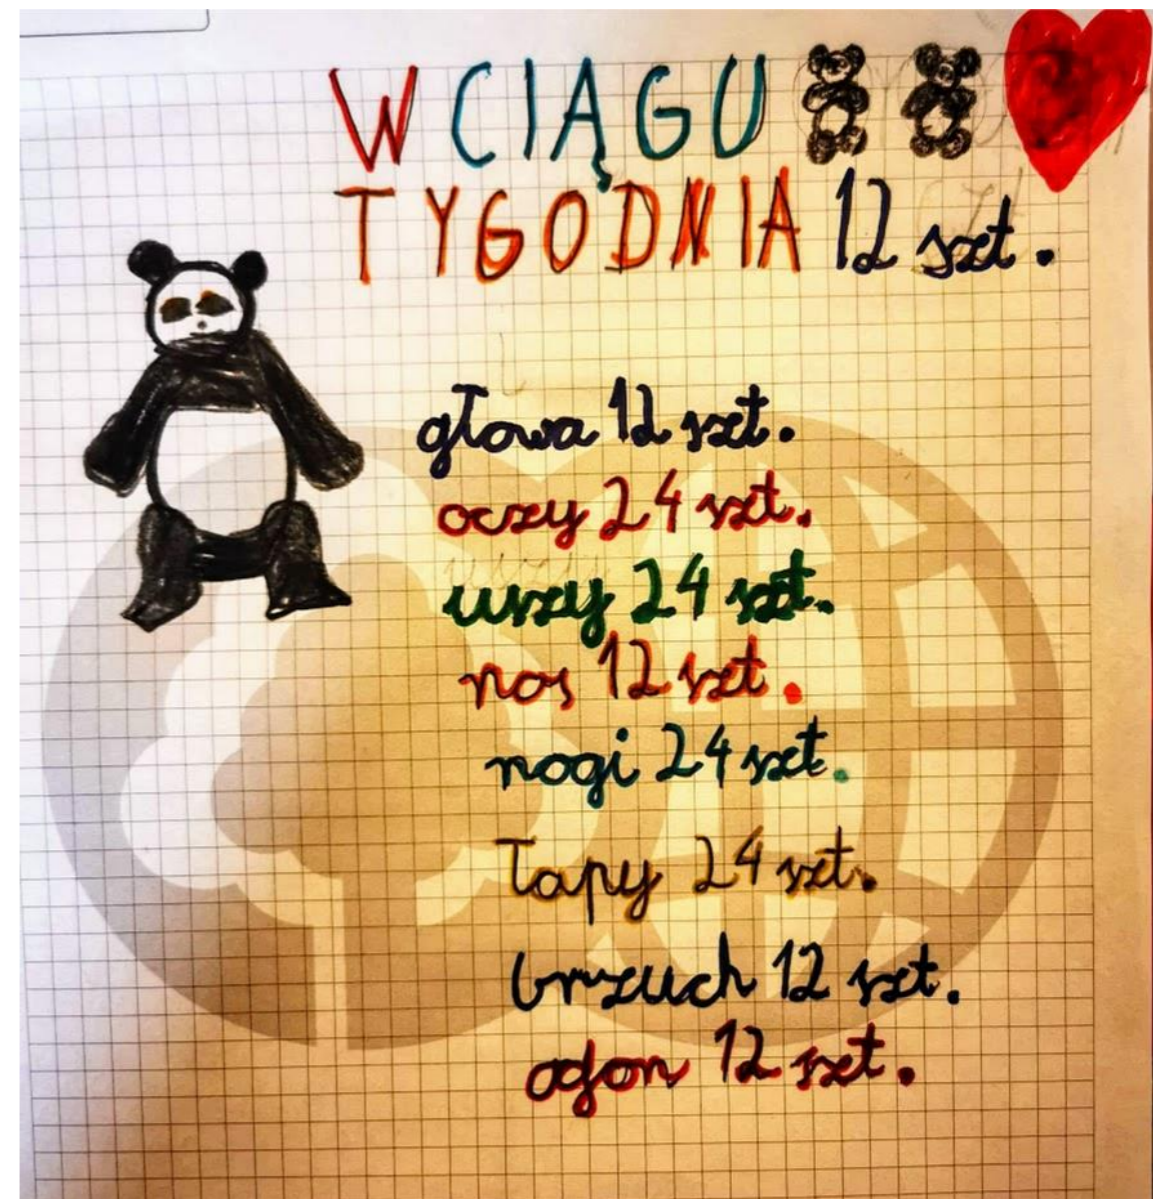 W CIĄGU
TYGODNIA 12 szt.
głowa 12 szt.
oczy 24 szt.
uszy 24 szt.
nos 12 szt.
nogi 24 szt.
łapy 24 szt.
brzuch 12 szt.
ogon 12 szt.